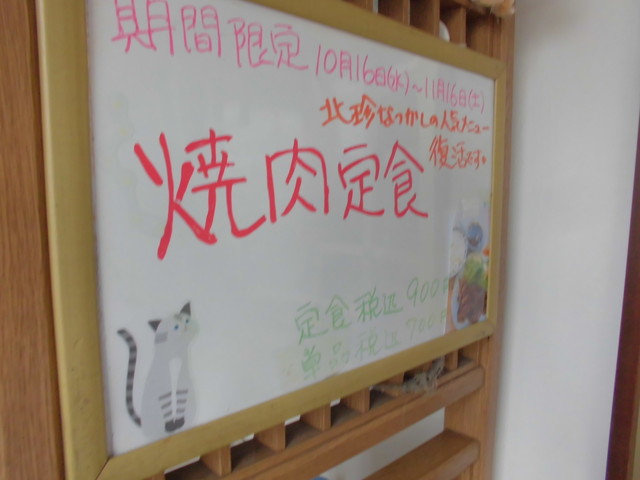 期間限定 10月16日(水)～11月16日(土)
北珍なつかしの人気メニュー
復活です。
焼肉定食
定食税込 900円
単品税込 700円